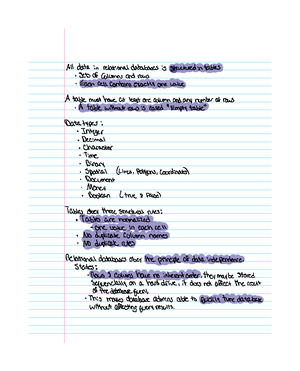 All data in relational databases is structured in tables
• Sets of columns and rows
• Each cell contains exactly one value
A table must have at least one column and any number of rows
• A table without rows is called "Empty table"
Data types:
• Integer
• Decimal
• Character
• Time
• Binary
• Spatial (Lines, Polygons, Coordinates)
• Document
• Money
• Boolean (True & False)
Tables obey three structural rules:
• Tables are normalized
• one value in each cell
• No duplicate column names
• No duplicate rows
Relational databases obey the principle of data independence
States:
• Rows & columns have no inherent order, they may be stored
sequencially on a hard drive, it does not affect the result
of the database query.
• This makes database admins able to tune database
without affecting query results.